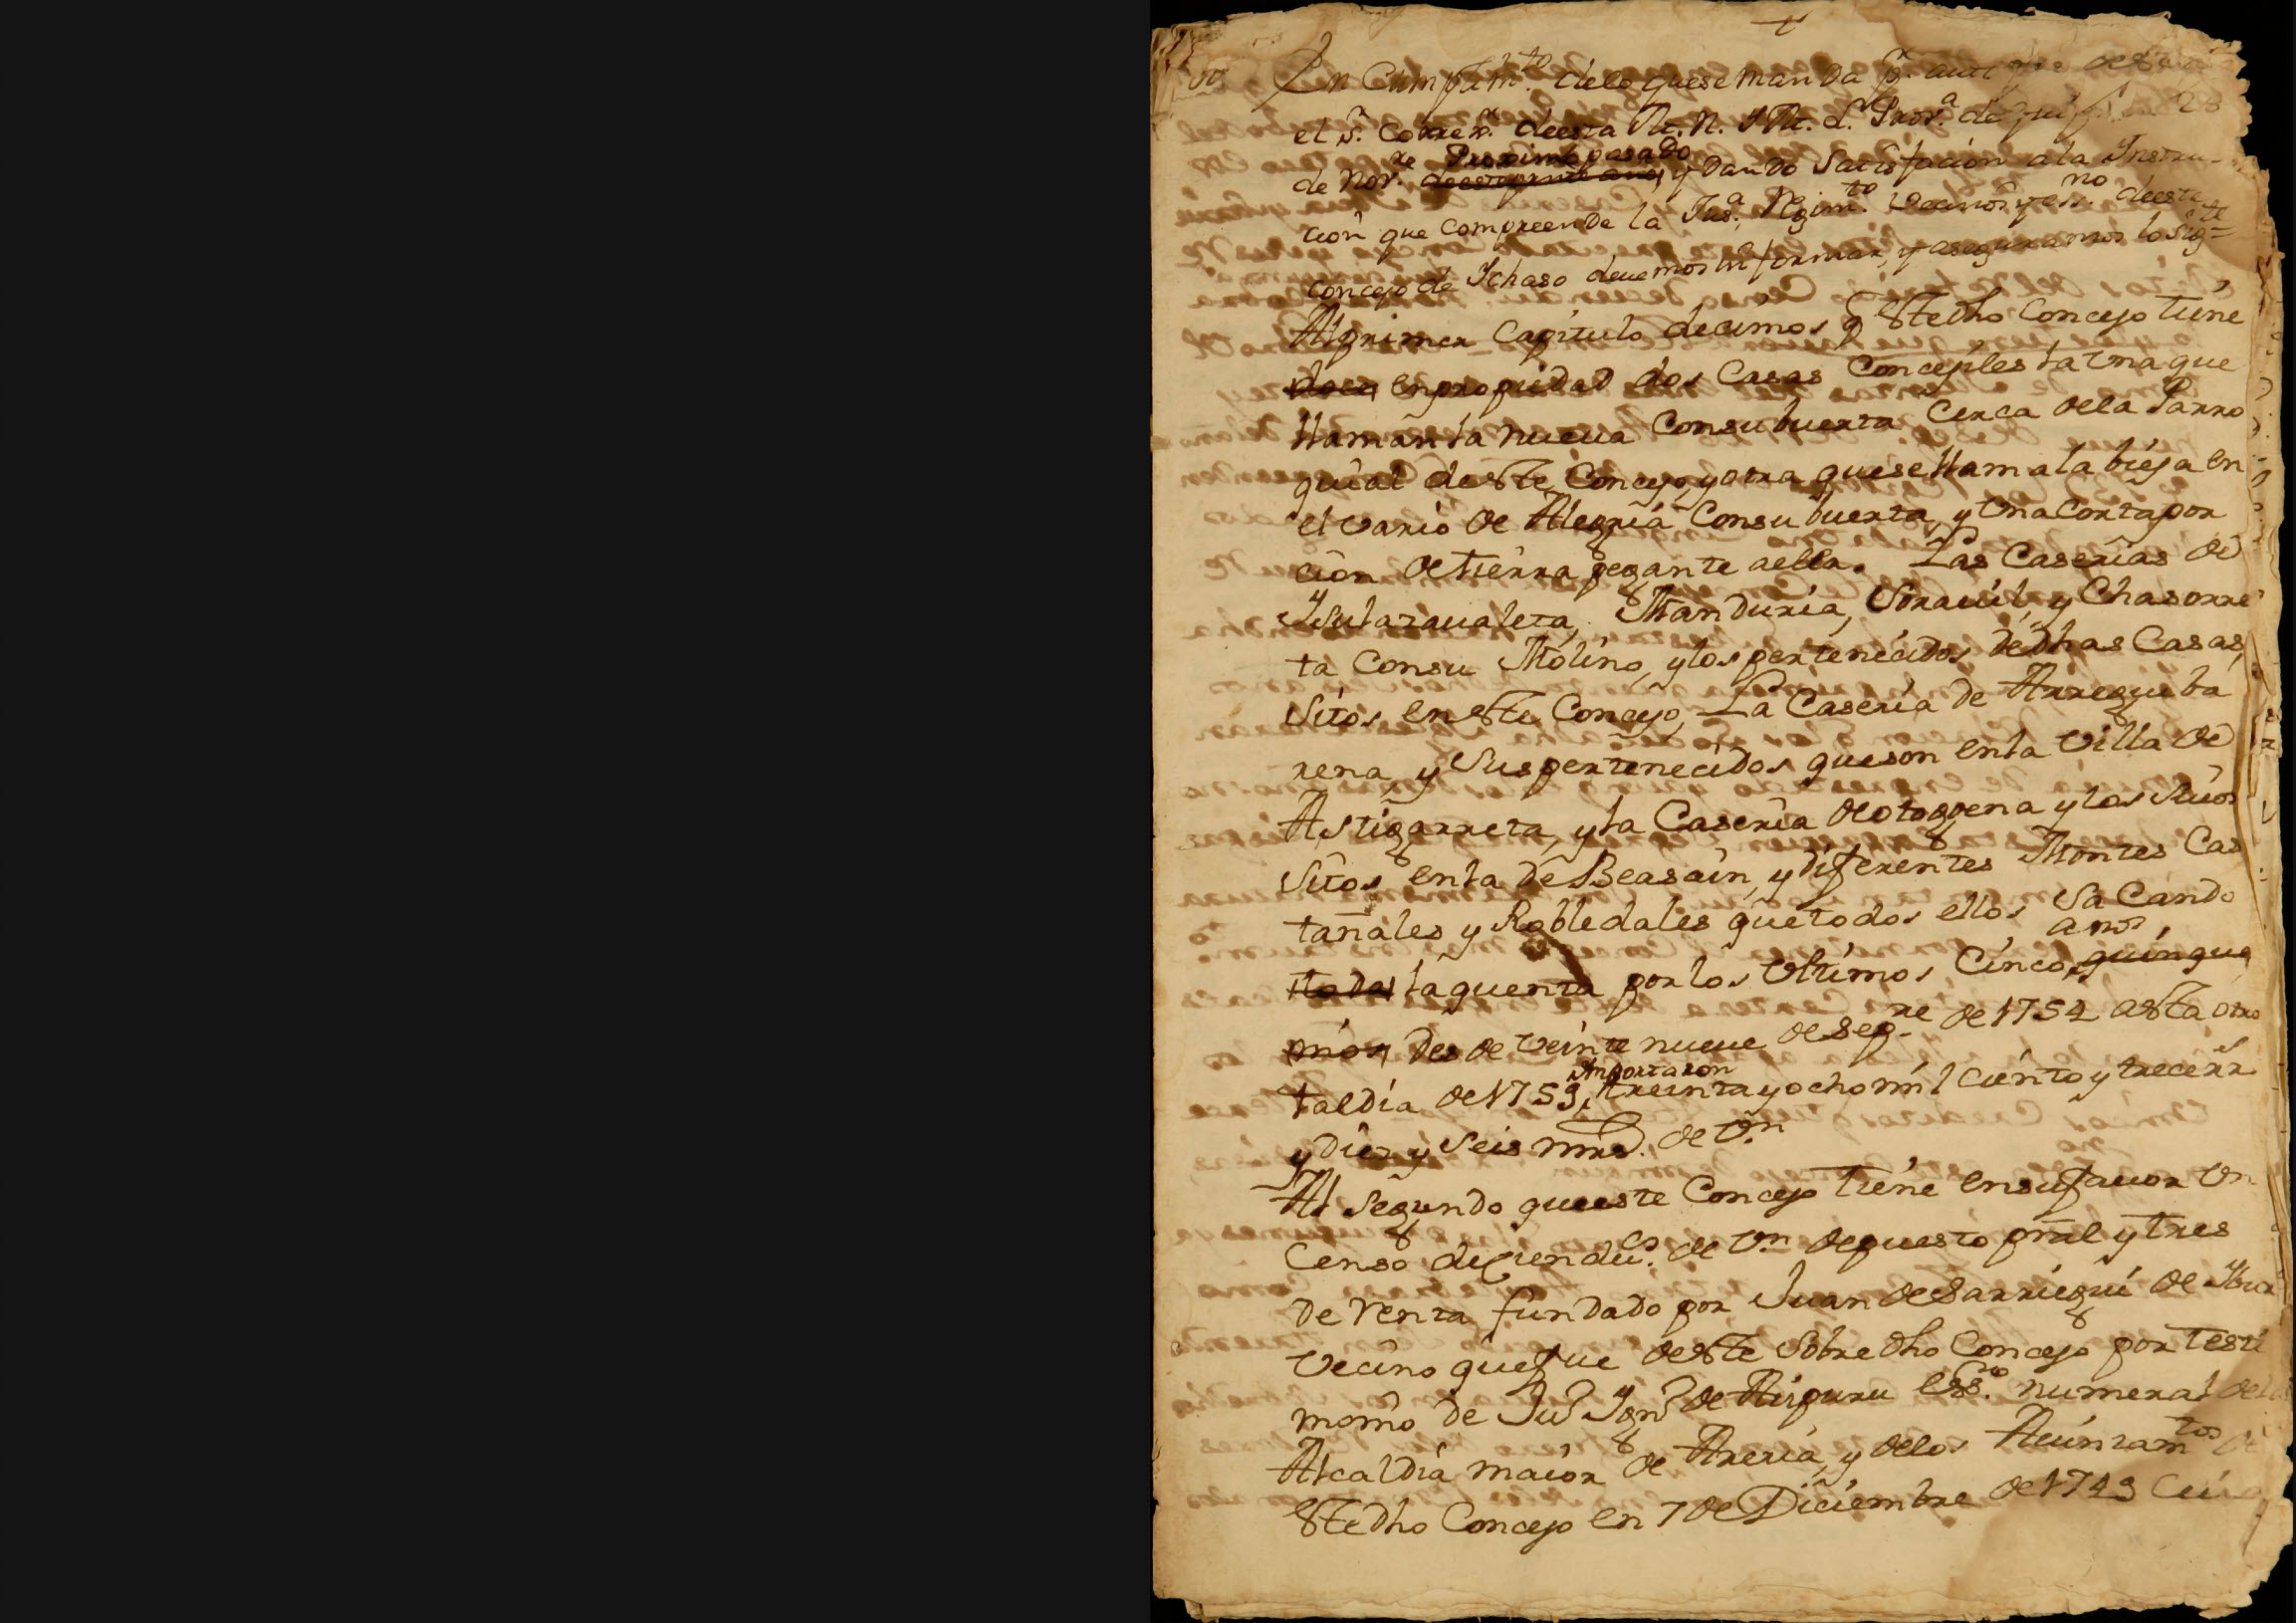 +
En Cumplim.to delo quese manDa p.r auto
el S.r Correx.r deesta M. N. Y M. L. Prov.a de Guip 28
de Nov.re deestepresente año, Proximo pasaDo y DanDo Satisfacion ala Ynstru-
cion que CompreenDe la Jus.a Regim.to Vecinos y ess.no deeste
Concejo de Ychaso devemos informar, y aseguramos lo sig.te =
Alprimer Capitulo decimos q̃ EsteDho Concejo tiene
doce, enpropiedaD dos Casas Concejiles la Vna que
llaman la nueua Consu huerta Cerca dela Parro
quial deste Concejo, y otra quese llama la bieja en
el vario de Alegria Consu huerta, y Vna Corta por
cion de tierra pegante aella. Las Caserias de
Ysulazaualeta, ManDuria, Vrauil, y Chasorre
ta Consu Molino, y los pertenecidos deDhas Casas,
Sitos en este Concejo, La Caseria de Arreguiba
rena, y Suspertenecidos queson en la Villa de
Astigarreta, y la Caseria de otogoena y los Suios
Sitos en la de Beasain, y diferentes Montes Cas
tañales y Robledales que todos ellos SaCando
todas laquenta por los Vltimos Cinco años quinque
nios, Desde Veinte nueue de Sep.re de 1754 asta otro
tal dia de 1759, Ymportaron treinta y ocho mil ciento y trece rr.s
y Diez y Seis mrs. de V.n
Al Segundo queeste Concejo tiene ensufauor Vn
Censo decien du.cs de V.n depuesto pral y tres
de renta fundado por Juan deSarriegui de
Vecino quefue deeste SobreDho Concejo por testi
monio de Ju.n Ygn.o de Aizpuru Ess.no numeral dela
Alcaldia maior de Areria, y delos Aiuntam.tos de
EsteDho Concejo en 7 de Diciembre de 1749